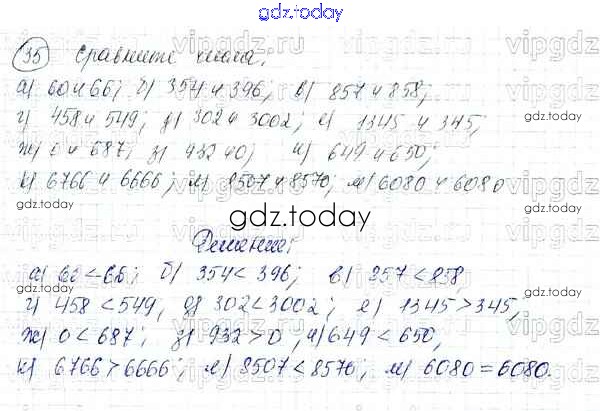 gdz.today
35 Сравните числа.
а) 60 и 66; б) 354 и 396; в) 857 и 858;
г) 458 и 549; д) 302 и 3002; е) 1345 и 345;
ж) 0 и 687; з) 932 и 0; и) 649 и 650;
к) 6766 и 6666; л) 8507 и 8570; м) 6080 и 6080
gdz.today
Решение:
а) 60 < 66; б) 354 < 396; в) 857 < 858
г) 458 < 549, д) 302 < 3002; е) 1345 > 345,
ж) 0 < 687; з) 932 > 0, и) 649 < 650,
к) 6766 > 6666; л) 8507 < 8570; м) 6080 = 6080.
vipgdz.ru
gdz.today